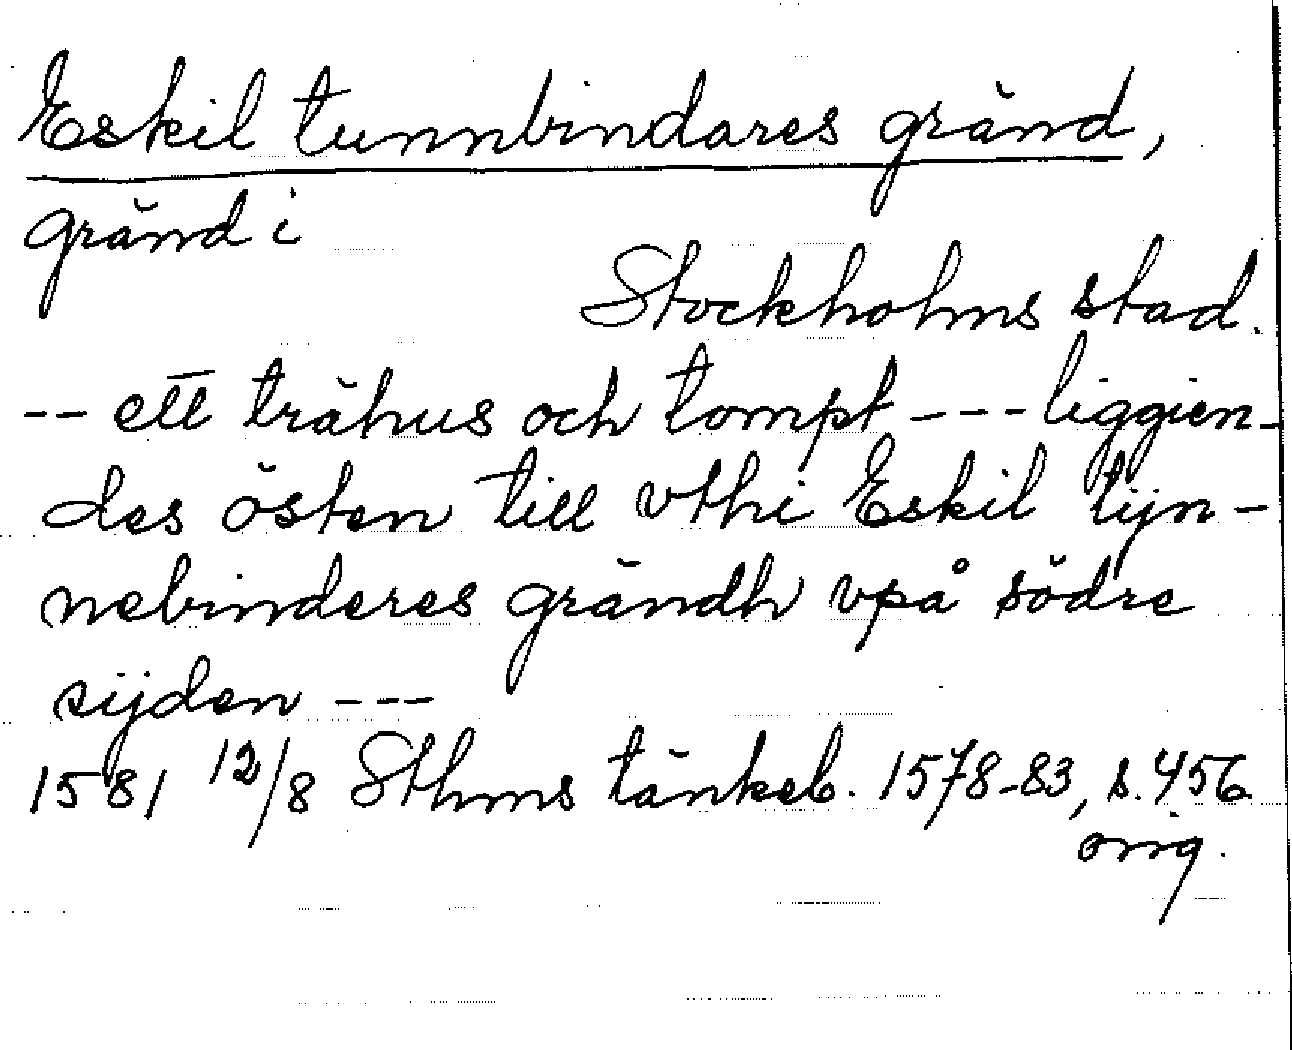 Eskil tunnbindares gränd,
gränd i
Stockholms stad.
-- ett trähus och tompt --- liggien-
des östen till vthi Eskil tijn-
nebinderes grändh vpå södre
sijden ---
1581 12/8 Sthms tänkeb. 1578-83, s. 456
orig.